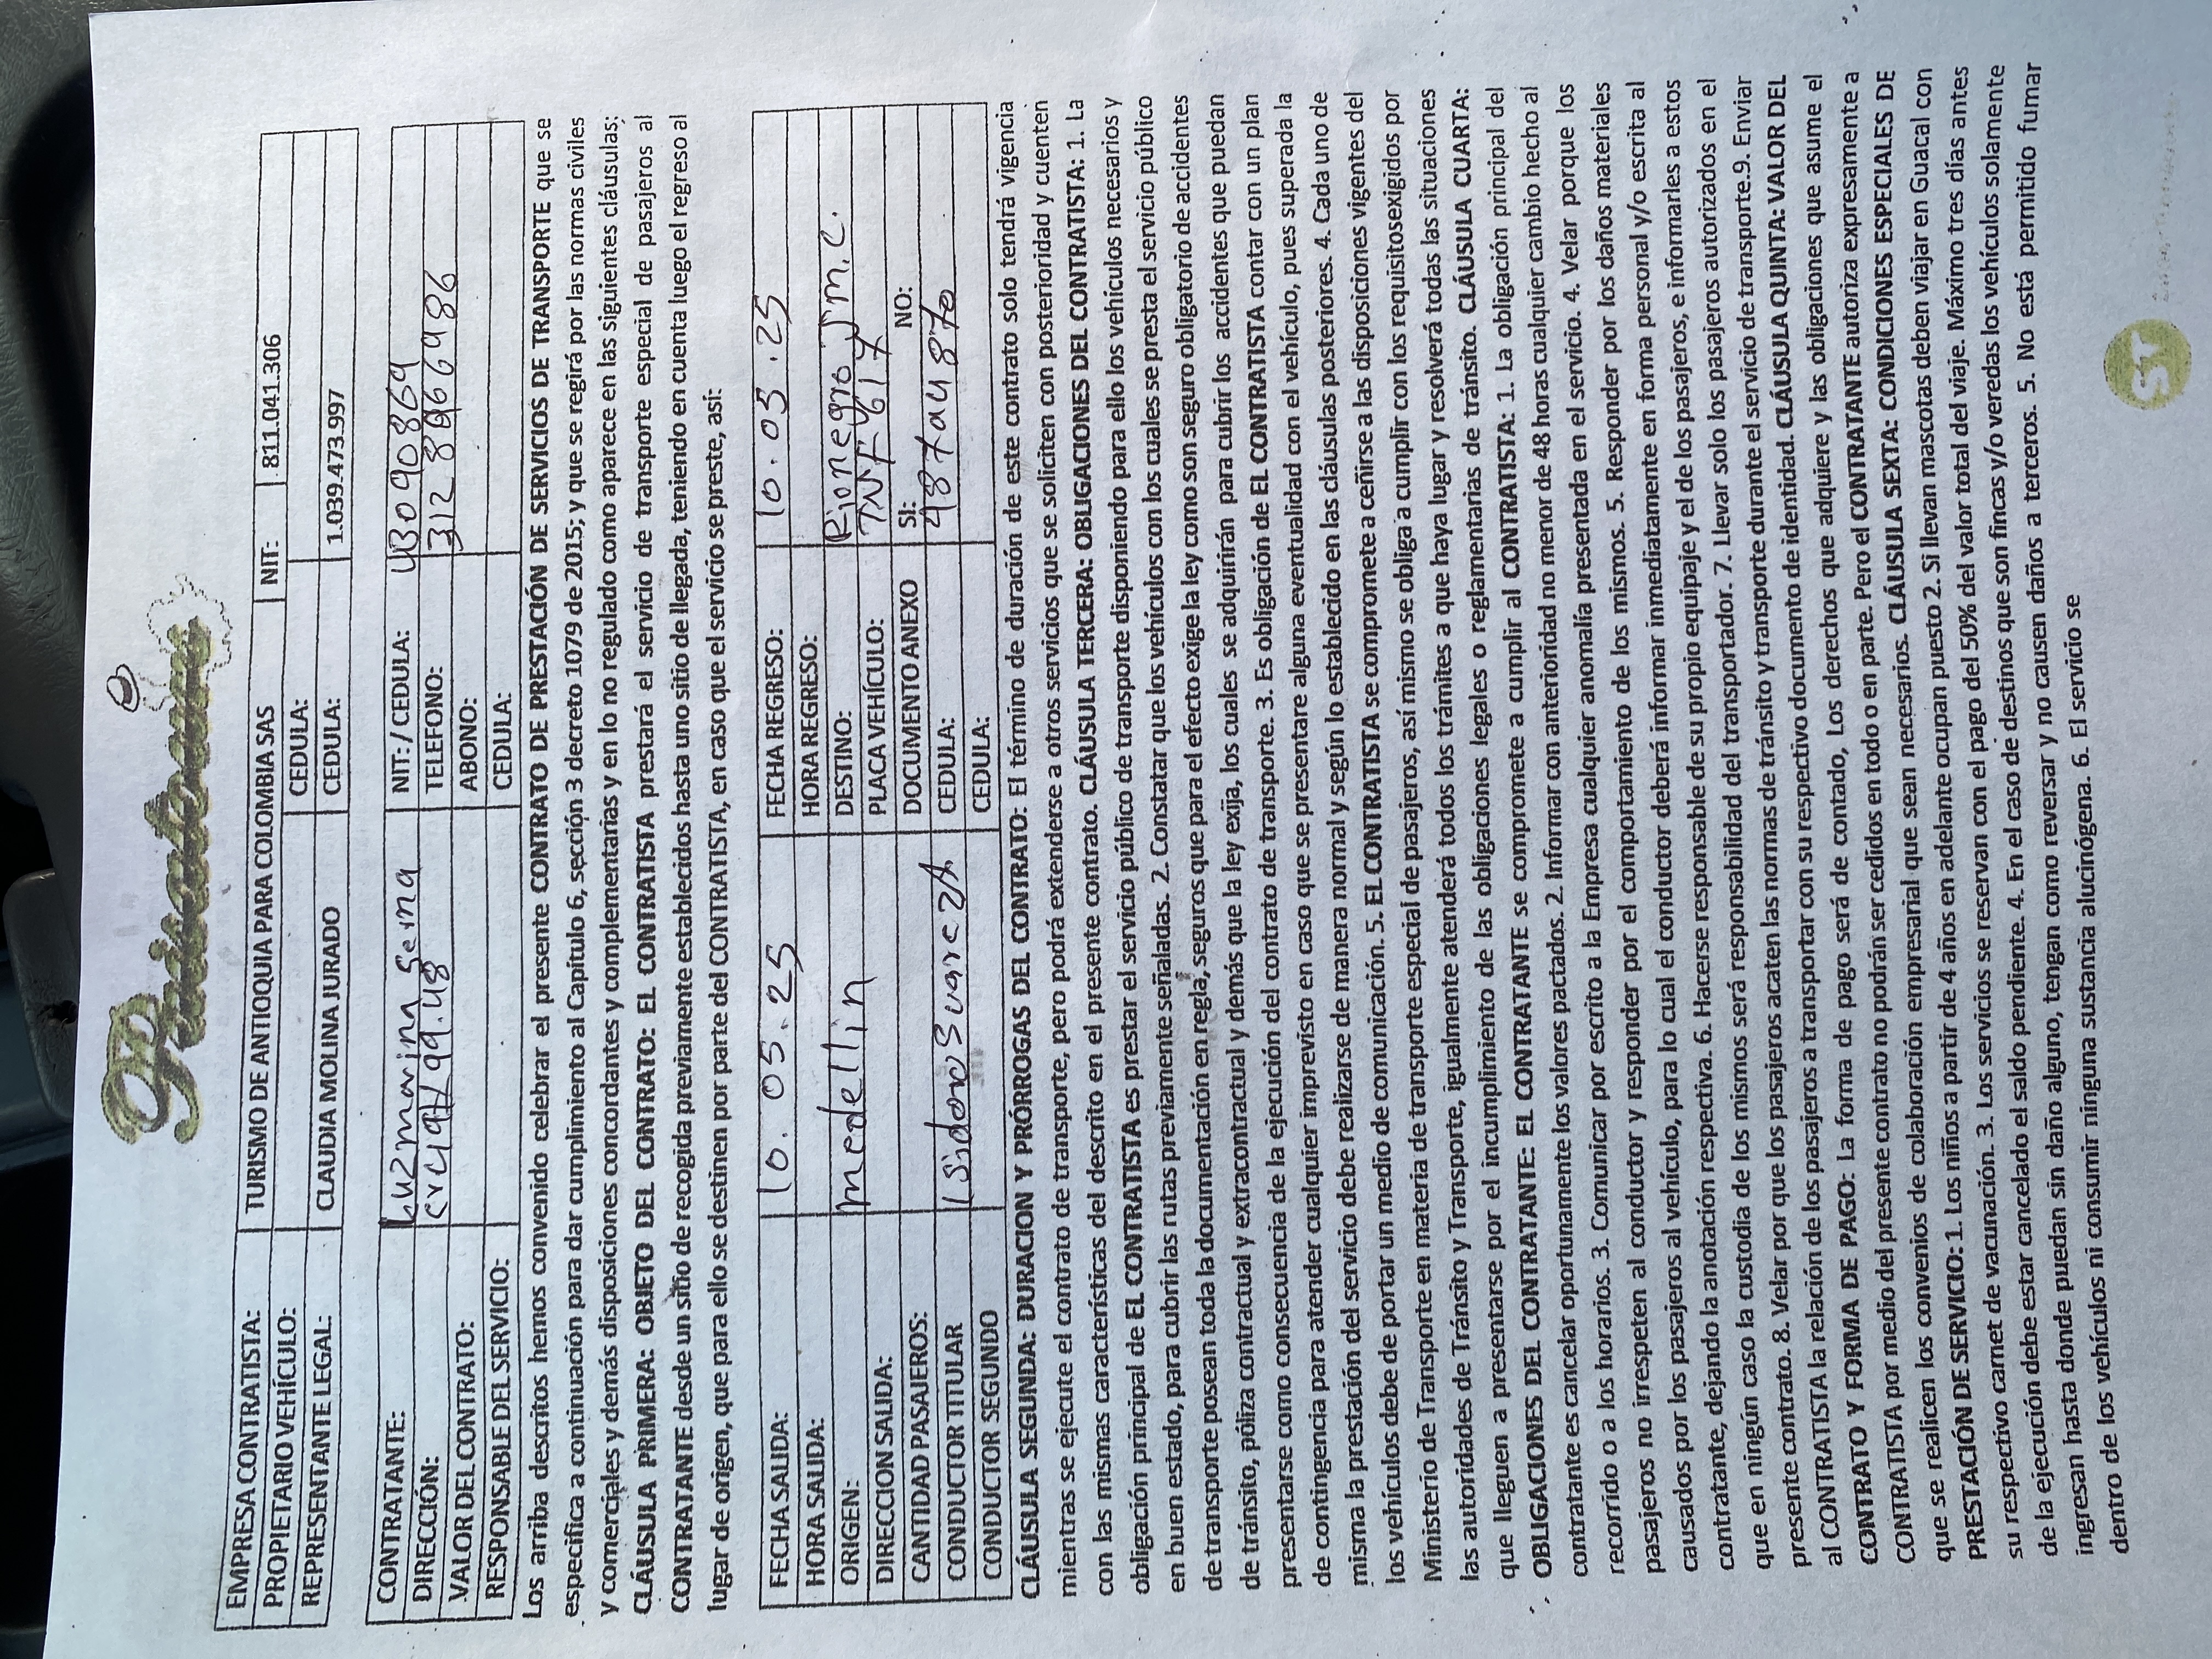 Paisatours
EMPRESA CONTRATISTA: TURISMO DE ANTIOQUIA PARA COLOMBIA SAS NIT: 811.041.306
PROPIETARIO VEHÍCULO: CEDULA:
REPRESENTANTE LEGAL: CLAUDIA MOLINA JURADO CEDULA: 1.039.473.997
CONTRATANTE: Luzmarina Serna NIT: / CEDULA: 43090869
DIRECCIÓN: TELEFONO:
VALOR DEL CONTRATO: ABONO:
RESPONSABLE DEL SERVICIO: CEDULA:
Los arriba descritos hemos convenido celebrar el presente CONTRATO DE PRESTACIÓN DE SERVICIOS DE TRANSPORTE que se
especifica a continuación para dar cumplimiento al Capitulo 6, sección 3 decreto 1079 de 2015; y que se regirá por las normas civiles
y comerciales y demás disposiciones concordantes y complementarias y en lo no regulado como aparece en las siguientes cláusulas:
CLÁUSULA PRIMERA: OBJETO DEL CONTRATO: EL CONTRATISTA prestará el servicio de transporte especial de pasajeros al
CONTRATANTE desde un sitio de recogida previamente establecidos hasta uno sitio de llegada, teniendo en cuenta luego el regreso al
lugar de origen, que para ello se destinen por parte del CONTRATISTA, en caso que el servicio se preste, asi:
FECHA SALIDA: 10. 03. 25 FECHA REGRESO: 10. 03. 25
HORA SALIDA: HORA REGRESO:
ORIGEN: medellin DESTINO: Rionegro Jm.C.
DIRECCION SALIDA: PLACA VEHÍCULO: TNF617
CANTIDAD PASAJEROS: DOCUMENTO ANEXO SI: NO:
CONDUCTOR TITULAR Isidoro Suarez A CEDULA:
CONDUCTOR SEGUNDO CEDULA:
CLÁUSULA SEGUNDA: DURACION Y PRÓRROGAS DEL CONTRATO: El término de duración de este contrato solo tendrá vigencia
mientras se ejecute el contrato de transporte, pero podrá extenderse a otros servicios que se soliciten con posterioridad y cuenten
con las mismas características del descrito en el presente contrato. CLÁUSULA TERCERA: OBLIGACIONES DEL CONTRATISTA: 1. La
obligación principal de EL CONTRATISTA es prestar el servicio público de transporte disponiendo para ello los vehículos necesarios y
en buen estado, para cubrir las rutas previamente señaladas. 2. Constatar que los vehículos con los cuales se presta el servicio público
de transporte posean toda la documentación en regla, seguros que para el efecto exige la ley como son seguro obligatorio de accidentes
de tránsito, póliza contractual y extracontractual y demás que la ley exija, los cuales se adquirirán para cubrir los accidentes que puedan
presentarse como consecuencia de la ejecución del contrato de transporte. 3. Es obligación de EL CONTRATISTA contar con un plan
de contingencia para atender cualquier imprevisto en caso que se presentare alguna eventualidad con el vehículo, pues superada la
misma la prestación del servicio debe realizarse de manera normal y según lo establecido en las cláusulas posteriores. 4. Cada uno de
los vehículos debe de portar un medio de comunicación. 5. EL CONTRATISTA se compromete a ceñirse a las disposiciones vigentes del
Ministerio de Transporte en materia de transporte especial de pasajeros, así mismo se obliga a cumplir con los requisitosexigidos por
las autoridades de Tránsito y Transporte, igualmente atenderá todos los trámites a que haya lugar y resolverá todas las situaciones
que lleguen a presentarse por el incumplimiento de las obligaciones legales o reglamentarias de tránsito. CLÁUSULA CUARTA:
OBLIGACIONES DEL CONTRATANTE: EL CONTRATANTE se compromete a cumplir al CONTRATISTA: 1. La obligación principal del
contratante es cancelar oportunamente los valores pactados. 2. Informar con anterioridad no menor de 48 horas cualquier cambio hecho al
recorrido o a los horarios. 3. Comunicar por escrito a la Empresa cualquier anomalía presentada en el servicio. 4. Velar porque los
pasajeros no irrespeten al conductor y responder por el comportamiento de los mismos. 5. Responder por los daños materiales
causados por los pasajeros al vehículo, para lo cual el conductor deberá informar inmediatamente en forma personal y/o escrita al
contratante, dejando la anotación respectiva. 6. Hacerse responsable de su propio equipaje y el de los pasajeros, e informarles a estos
que en ningún caso la custodia de los mismos será responsabilidad del transportador. 7. Llevar solo los pasajeros autorizados en el
presente contrato. 8. Velar por que los pasajeros acaten las normas de tránsito y transporte durante el servicio de transporte.9. Enviar
al CONTRATISTA la relación de los pasajeros a transportar con su respectivo documento de identidad. CLÁUSULA QUINTA: VALOR DEL
CONTRATO Y FORMA DE PAGO: La forma de pago será de contado, Los derechos que adquiere y las obligaciones que asume el
CONTRATISTA por medio del presente contrato no podrán ser cedidos en todo o en parte. Pero el CONTRATANTE autoriza expresamente a
que se realicen los convenios de colaboración empresarial que sean necesarios. CLÁUSULA SEXTA: CONDICIONES ESPECIALES DE
PRESTACIÓN DE SERVICIO: 1. Los niños a partir de 4 años en adelante ocupan puesto 2. Si llevan mascotas deben viajar en Guacal con
su respectivo carnet de vacunación. 3. Los servicios se reservan con el pago del 50% del valor total del viaje. Máximo tres días antes
de la ejecución debe estar cancelado el saldo pendiente. 4. En el caso de destinos que son fincas y/o veredas los vehículos solamente
ingresan hasta donde puedan sin daño alguno, tengan como reversar y no causen daños a terceros. 5. No está permitido fumar
dentro de los vehículos ni consumir ninguna sustancia alucinógena. 6. El servicio se